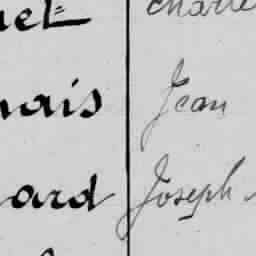 uet Charle
nais Jean
oard Joseph